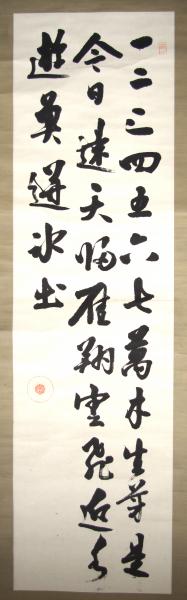 一二三四五六七萬木生芽是
今日遠天歸雁翔雲飛近水
遊莫迸氷出